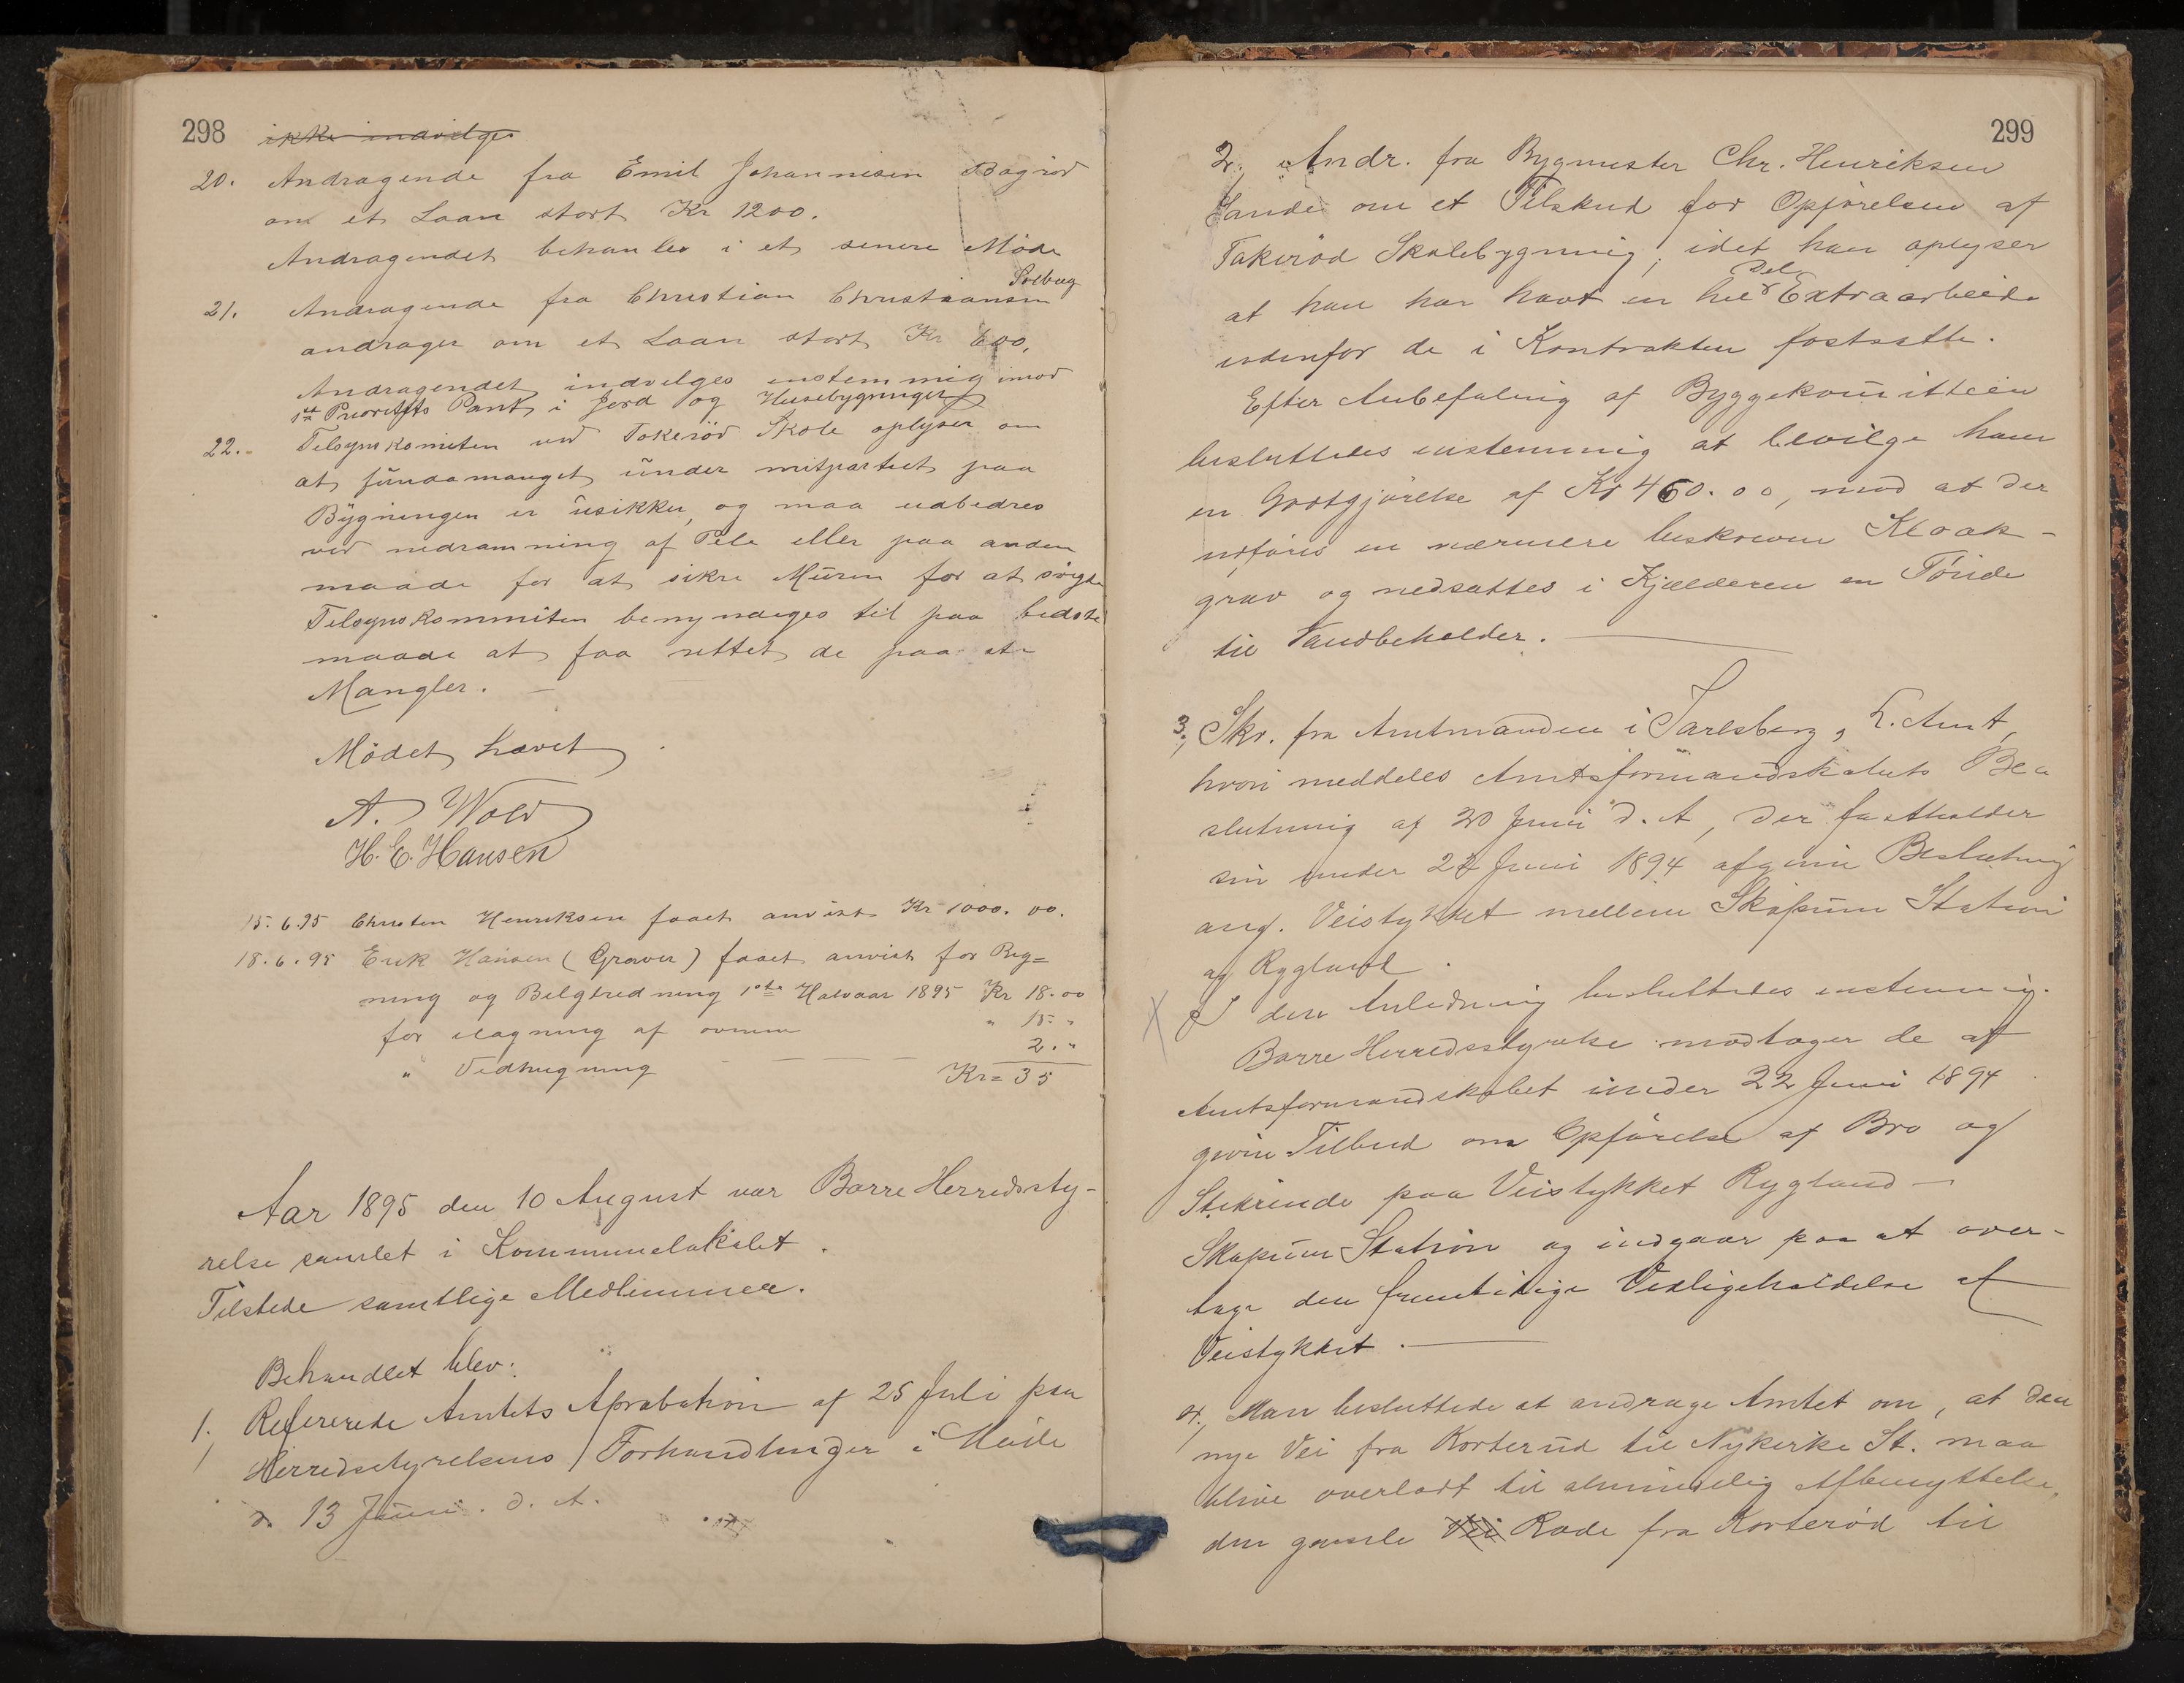 298
ikke indvilges
20. Andragende fra Emil Johannesen Bagrød
om et Laan stort Kr 1200.
Andragendet behanles i et senere Møde
21. Andragende fra Christian Christiansen Solberg
andrager om et Laan stort Kr 600,
Andragendet indvilges enstemmig imod
1ste Prioritets Pant i Jord og Husebygninger
22. Tilsynskomiten ved Tokerød Skole oplyser om
at fundamanget under mitpartiet paa
Bygningen er usikker, og maa udbedres
ved nedramning af Pele eller paa anden
maade for at sikre Muren for at
Tilsynskommiten benyndiges til paa bedste
maade at faa rettet de paa
Mangler. –
Mødet hævet.
A. Wold
H. E. Hansen
15.6.95 Christen Henriksen faaet anvist Kr 1000.00.
18.6.95 Erik Hansen (Graver) faaet anvist for Rig=
ning og Belgtredning 1ste Halvaar 1895 Kr 18.00
for ilagning af ovnen " 15 "
" Vedhugning 2. "
Kr = 35
Aar 1895 den 10 August var Borre Herredssty-
relse samlet i Kommunelokalet.
Tilstede samtlige Medlemmer.
Behandlet blev:
1. Refererede Amtets Aprobation af 25 Juli paa
Herredsstyrelsens Forhandlinger i Møde
d. 13 Juni. d. A.
299
2. Andr. fra Bygmester Chr. Henriksen
Sande om et Tilskud for Opførelsen af
Takerød Skolebygning; idet han oplyser
at han har havt en hel Del Extraarbeide
udenfor de i Kontrakten fastsatte.
Efter Anbefaling af Byggekomitteen
besluttedes enstemmig at bevilge ham
en Godtgjørelse af Kr 460.00, mod at der
udføres en nærmere beskreven Kloak-
grav og nedsættes i Kjælderen en Tønde
til Vandbeholder.
3, Skr. fra Amtmanden i Jarlsberg, L. Amt,
hvori meddeles Amtsformandskabets Be
slutning af 20 Juni d. A, der fastholder
sin under 22 Juni 1894 afgivne Beslutning
ang. Veistykket mellem Skopum Station
og Rygland.
X I den Anledning besluttedes enstemmig.
Borre Herredsstyrelse modtager de af
Amtsformandskabet under 22 Juni 1894
givne Tilbud om Opførelse af Bro og
Stikrende paa Veistykket Rygland –
Skopum Station og indgaar paa at over-
tage den fremtidige Vedligeholdelse af
Veistykket.
4., Man besluttede at andrage Amtet om, at den
nye Vei fra Korterud til Nykirke St. maa
blive overladt til almindelig Afbenyttelse,
den gamle Vei Rode fra Korterød til